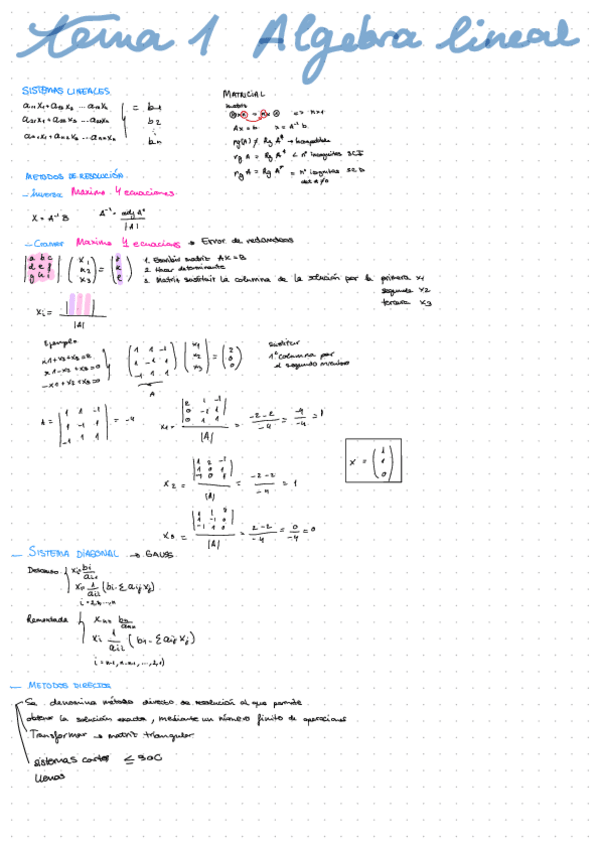 tema 1 Algebra lineal
SISTEMAS LINEALES
a₁₁x₁+a₁₂x₂ ...a₁ₙxₙ = b₁
a₂₁x₁+a₂₂x₂ ...a₂ₙxₙ b₂
aₙ₁x₁+aₙ₂x₂ ...aₙₙxₙ bₙ
MATRICIAL
=> n×1
Ax = b x = A⁻¹ b
rg(A) ≠ Rg A* → Incompatible
rg A = Rg A* < nº incognitas SCI
rg A = Rg A* = nº incognitas SCD
det A ≠ 0
METODOS DE RESOLUCIÓN
- Inversa Maximo 4 ecuaciones
X = A⁻¹ B A⁻¹ = adj Aᵗ / |A|
- Cramer Maximo 4 ecuaciones → Error de redondeos
|a b c| (x₁)
|d e f| (x₂) =
|g h i| (x₃)
1. Escribir matriz AX = B
2. Hacer determinante
3. Matriz sustituir la columna de la solución por la primera x₁
segunda x₂
tercera x₃
xᵢ = |||| / |A|
Ejemplo
x₁+x₂+x₃=2
x₁-x₂+x₃=0
-x₁+x₂+x₃=0
(1 1 -1) (x₁) (2)
(1 -1 1) (x₂) = (0)
(-1 1 1) (x₃) (0)
A
sustituir
1ª columna por
el segundo miembro
A = |1 1 -1|
|1 -1 1| = -4
|-1 1 1|
x₁ = |2 1 -1|
|0 -1 1| = -2-2 / -4 = -4 / -4 = 1
|0 1 1|
|A|
x₂ = |1 2 -1|
|1 0 1| = -2-2 / -4 = 1
|-1 0 1|
|A|
x = (1)
(1)
(0)
x₃ = |1 1 2|
|1 -1 0| = 2-2 / -4 = 0 / -4 = 0
|-1 1 0|
|A|
- SISTEMA DIAGONAL → GAUSS
Descenso x₁ = bᵢ / aᵢ₁
xᵢ = 1 / aᵢᵢ (bᵢ - Σ aᵢⱼ xⱼ)
i = 2,3,...,n
Remontada xₙ = bₙ / aₙₙ
xᵢ 1 / aᵢᵢ (bᵢ - Σ aᵢⱼ xⱼ)
i = n-1, n-2, ..., 2, 1)
- METODOS DIRECTOS
Se denomina método directo de resolución al que permite
obtener la solución exacta, mediante un número finito de operaciones
Transformar → matriz triangular
sistemas cortos ≤ 300
llenos